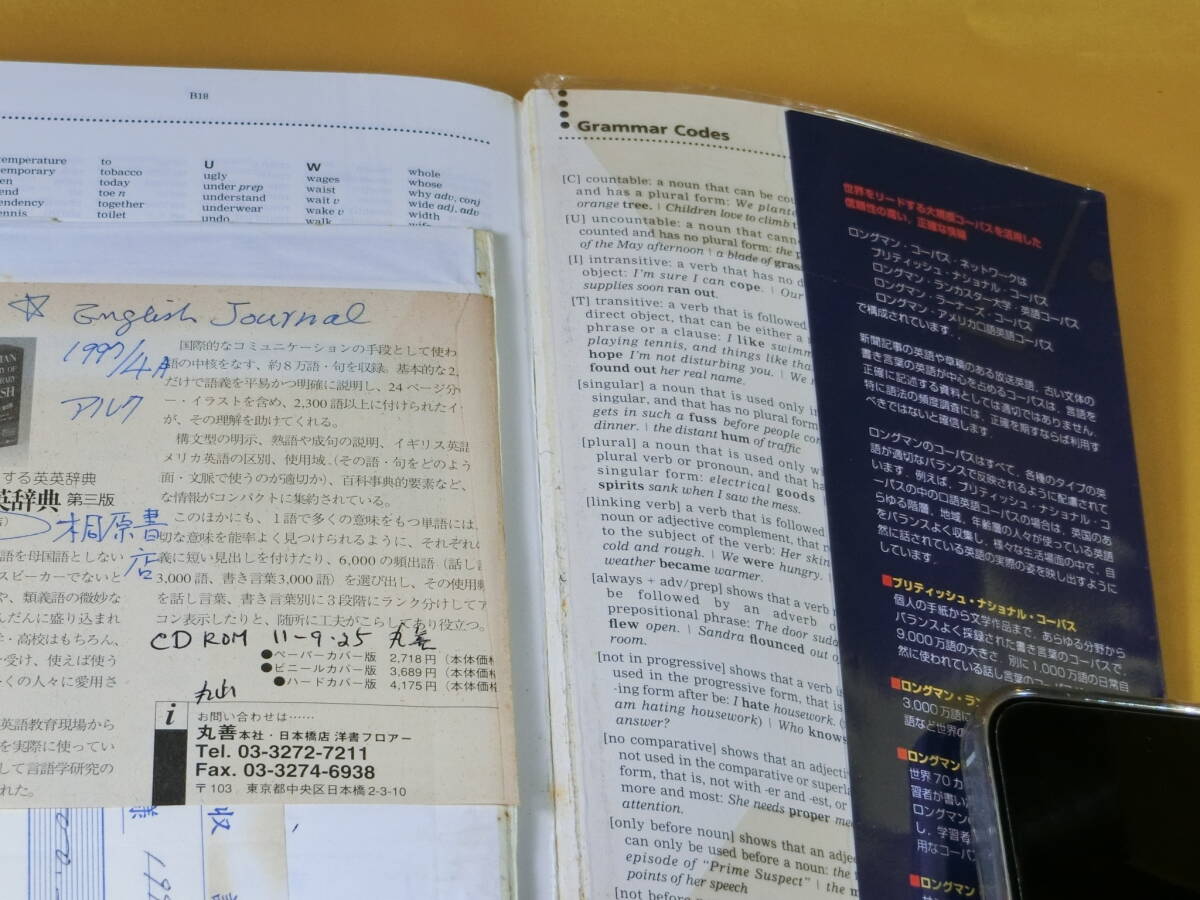 B18
temperature
temporary
tennis
to
tobacco
today
toe n
together
toilet
U
ugly
under prep
understand
underwear
undo
W
wages
waist
wait v
wake v
walk
whole
whose
why adv, conj
wide adj, adv
width
wife
☆ English Journal
1997/4月
アルク
国際的なコミュニケーションの手段として使わ
語の中核をなす、約8万語・句を収録。基本的な2,
だけで語義を平易かつ明確に説明し、24ページ分
ー・イラストを含め、2,300語以上に付けられたイ
が、その理解を助けてくれる。
構文型の明示、熟語や成句の説明、イギリス英語
メリカ英語の区別、使用域(その語・句をどのよう
面・文脈で使うのが適切か)、百科事典的要素など、
な情報がコンパクトに集約されている。
このほかにも、1語で多くの意味をもつ単語には、
切な意味を能率よく見つけられるように、それぞれ
義に短い見出しを付けたり、6,000の頻出語(話し
3,000語、書き言葉3,000語)を選び出し、その使用
を話し言葉、書き言葉別に3段階にランク分けしてア
コン表示したりと、随所に工夫がこらしてあり役立つ。
する英英辞典
英辞典 第三版
桐原書
店
語を母国語としない
スピーカーでないと
や、類義語の微妙な
んだんに盛り込まれ
・高校はもちろん、
受け、使えば使う
くの人々に愛用さ
英語教育現場から
を実際に使ってい
して言語学研究の
れた。
CD ROM 11-9-25 丸善
●ペーパーカバー版 2,718円(本体価格
●ビニールカバー版 3,689円(本体価格
●ハードカバー版 4,175円(本体価格
i
お問い合わせは……
丸善 本社・日本橋店 洋書フロアー
Tel. 03-3272-7211
Fax. 03-3274-6938
〒103 東京都中央区日本橋2-3-10
収
Grammar Codes
[C] countable: a noun that can be
and has a plural form: We
orange tree. | Children love to climb
[U] uncountable: a noun that
counted and has no plural form: the
of the May afternoon | a blade of grass
[I] intransitive: a verb that has no
object: I'm sure I can cope. | Our
supplies soon ran out.
[T] transitive: a verb that is followed
direct object, that can be either a
phrase or a clause: I like
playing tennis, and things like that
hope I'm not disturbing you. | We
found out her real name.
[singular] a noun that is used only in
singular, and that has no plural form
gets in such a fuss before people
dinner. | the distant hum of traffic
[plural] a noun that is used only
plural verb or pronoun, and that
singular form: electrical goods
spirits sank when I saw the mess.
[linking verb] a verb that is followed
noun or adjective complement, that
to the subject of the verb: Her skin
cold and rough. | We were hungry. |
weather became warmer.
[always + adv/prep] shows that a verb
be followed by an adverb
prepositional phrase: The door
flew open. | Sandra flounced out of
room.
[not in progressive] shows that a verb is
used in the progressive form, that is
-ing form after be: I hate housework. (
am hating housework) | Who knows
answer?
[no comparative] shows that an
not used in the comparative or
form, that is, not with -er and -est, or
more and most: She needs proper
attention.
[only before noun] shows that an
can only be used before a noun: the
episode of "Prime Suspect" | the
points of her speech
[not before
世界をリードする大規模コーパスを活用した
信頼性の高い、正確な情報
ロングマン・コーパス・ネットワークは
ブリティッシュ・ナショナル・コーパス
ロングマン・ランカスター大学・英語コーパス
ロングマン・ラーナーズ・コーパス
ロングマン・アメリカ口語英語コーパス
で構成されています。
新聞記事の英語や草稿のある放送英語、古い文体の
書き言葉の英語が中心を占めるコーパスは、言語を
正確に記述する資料としては適切ではありません。
特に語法の頻度調査には、正確を期すならば利用す
べきではないと確信します。
ロングマンのコーパスはすべて、各種のタイプの英
語が適切なバランスで反映されるように配慮されて
います。例えば、ブリティッシュ・ナショナル・コ
ーパスの中の口語英語コーパスの場合は、英国のあ
らゆる階層、地域、年齢層の人々が使っている英語
をバランスよく収集し、様々な生活場面の中で、自
然に話されている英語の実際の姿を映し出すように
しています。
■ブリティッシュ・ナショナル・コーパス
個人の手紙から文学作品まで、あらゆる分野から
バランスよく採録された書き言葉のコーパスで、
9,000万語の大きさ。別に1,000万語の日常自
然に使われている話し言葉のコーパス
■ロングマン・ラン
3,000万語に
語など世界の
■ロングマン
世界70カ
習者が書い
ロングマンの
し、学習者
用なコーパス
■ロングマン